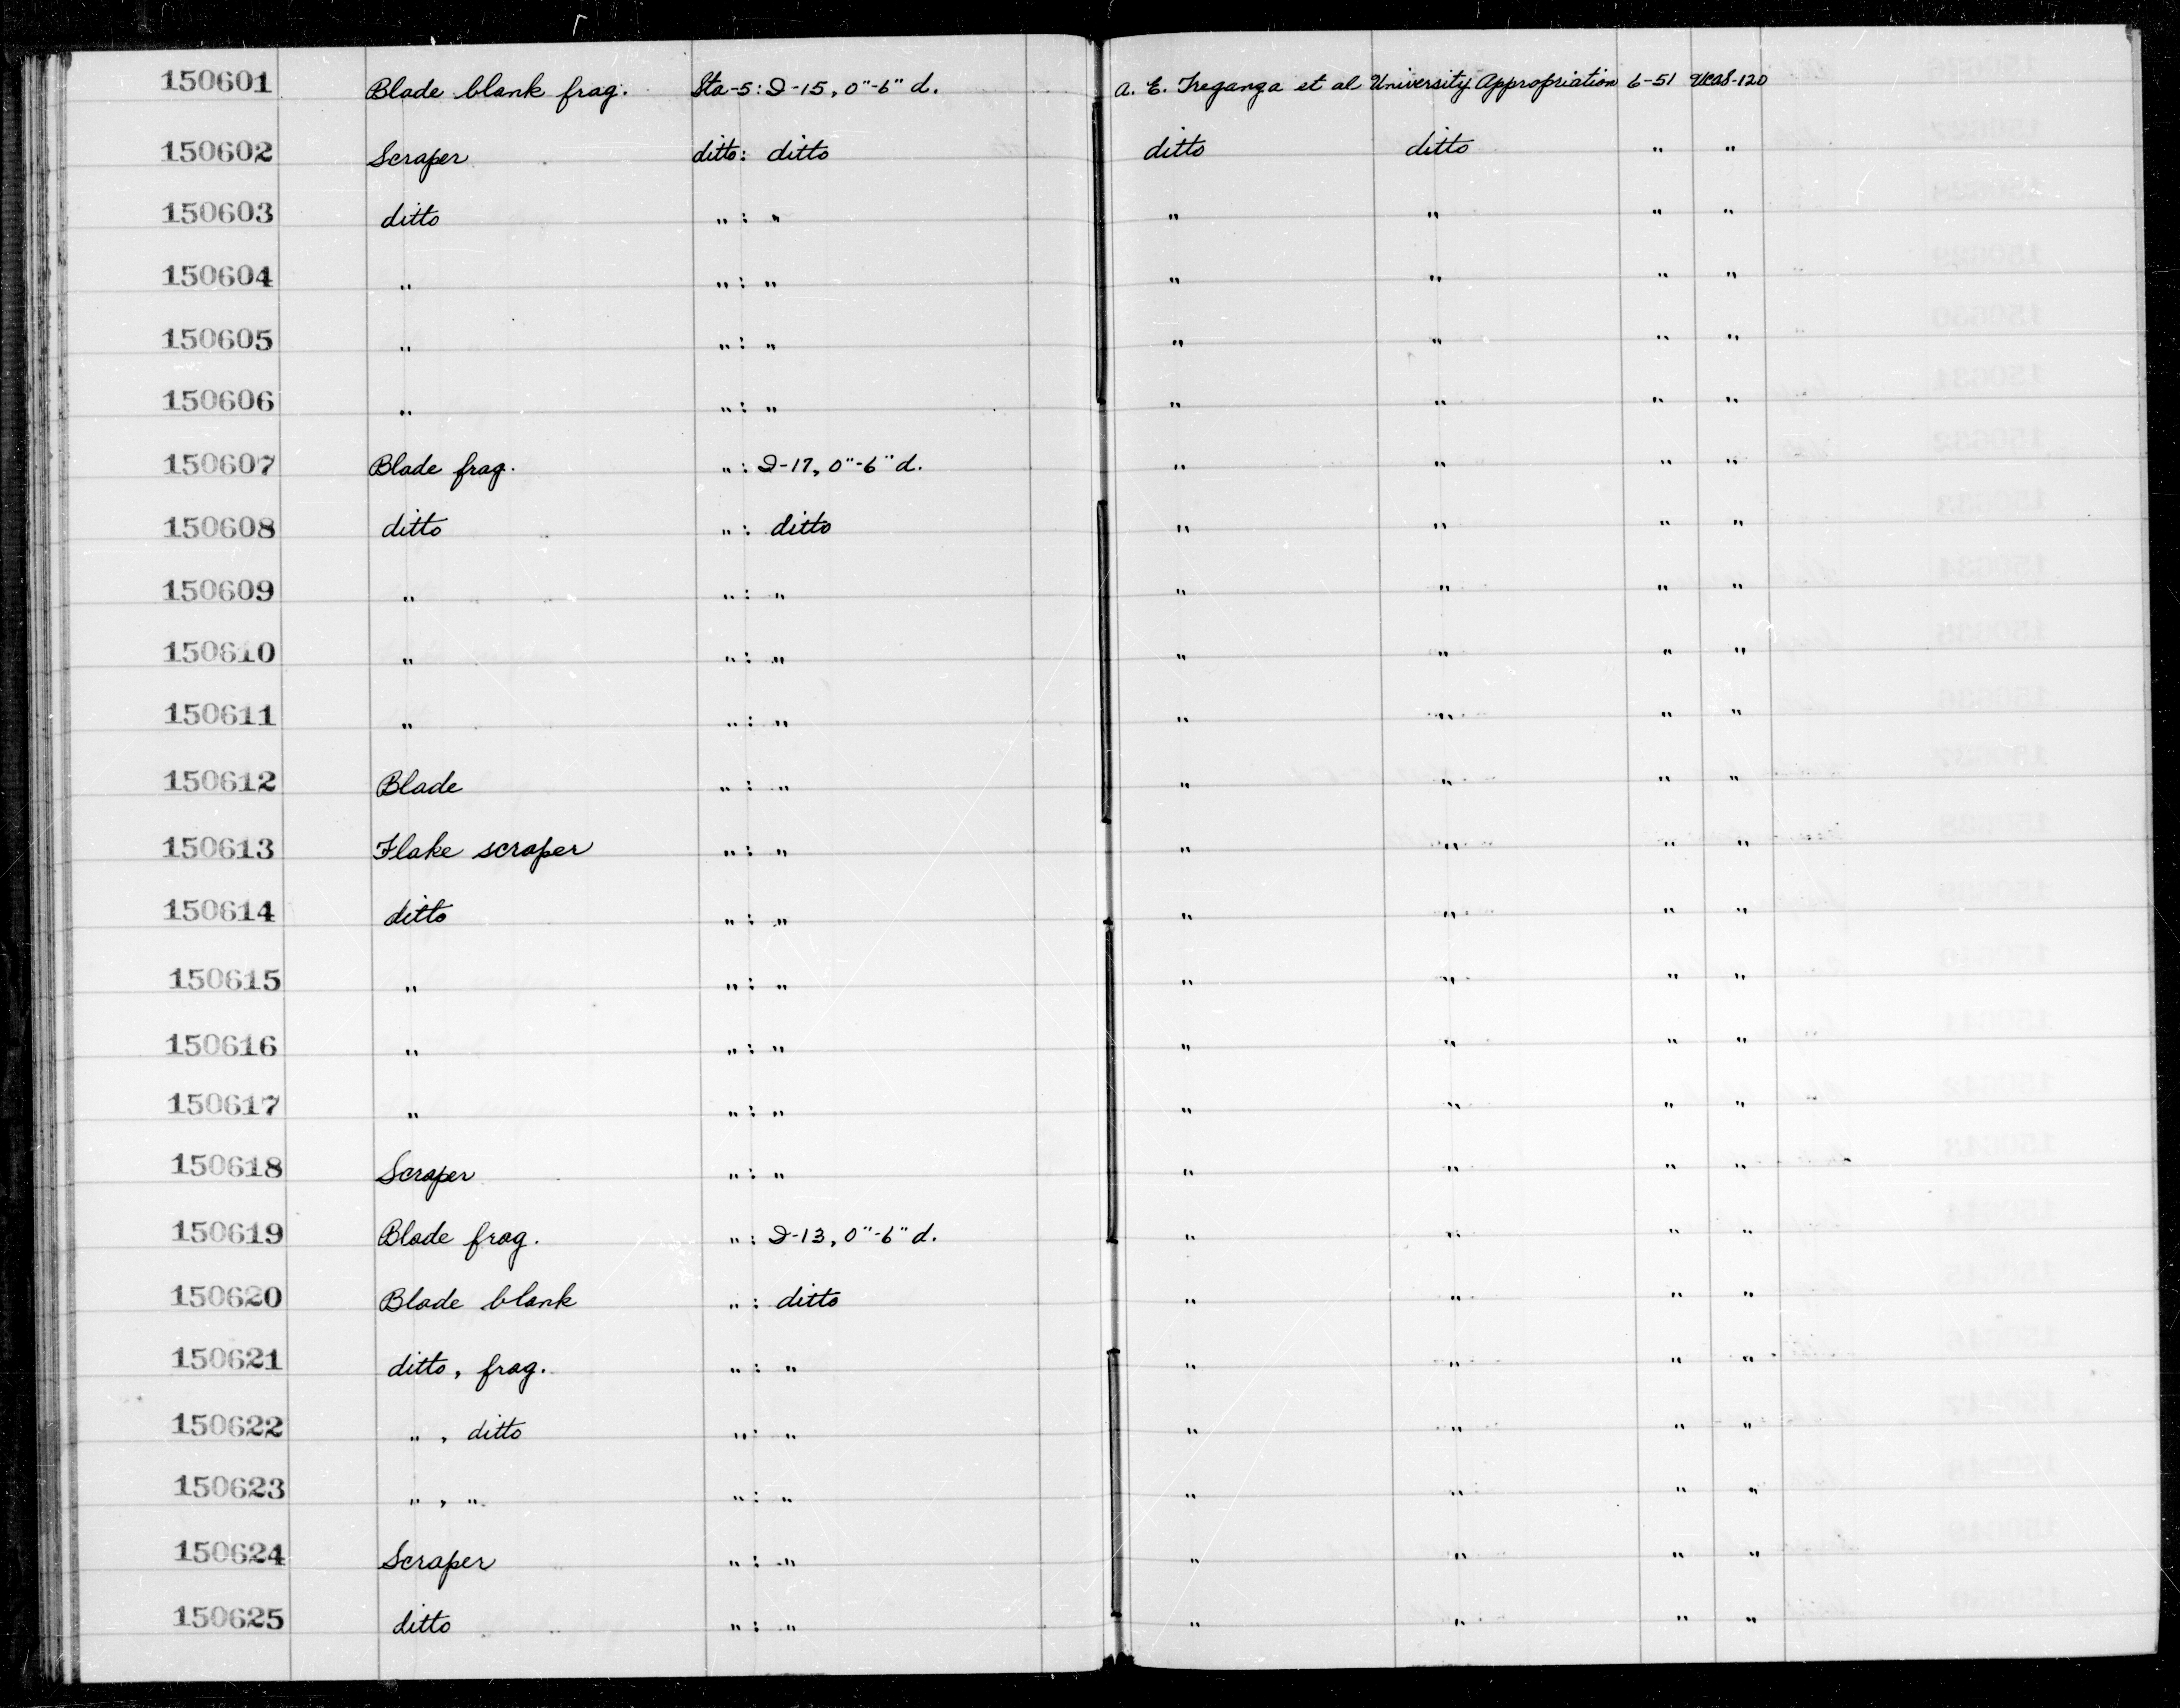 150601 Blade blank frag. Sta-5: D-15, 0"-6" d. A. E. Treganza et al University Appropriation 6-51 UCAS-120
150602 Scraper ditto: ditto ditto ditto " "
150603 ditto " : " " " " "
150604 " " : " " " " "
150605 " " : " " " " "
150606 " " : " " " " "
150607 Blade frag. " : D-17, 0"-6" d. " " " "
150608 ditto " : ditto " " " "
150609 " " : " " " " "
150610 " " : " " " " "
150611 " " : " " " " "
150612 Blade " : " " " " "
150613 Flake scraper " : " " " " "
150614 ditto " : " " " " "
150615 " " : " " " " "
150616 " " : " " " " "
150617 " " : " " " " "
150618 Scraper " : " " " " "
150619 Blade frag. " : D-13, 0"-6" d. " " " "
150620 Blade blank " : ditto " " " "
150621 ditto, frag. " : " " " " "
150622 " , ditto " : " " " " "
150623 " , " " : " " " " "
150624 Scraper " : " " " " "
150625 ditto " : " " " " "